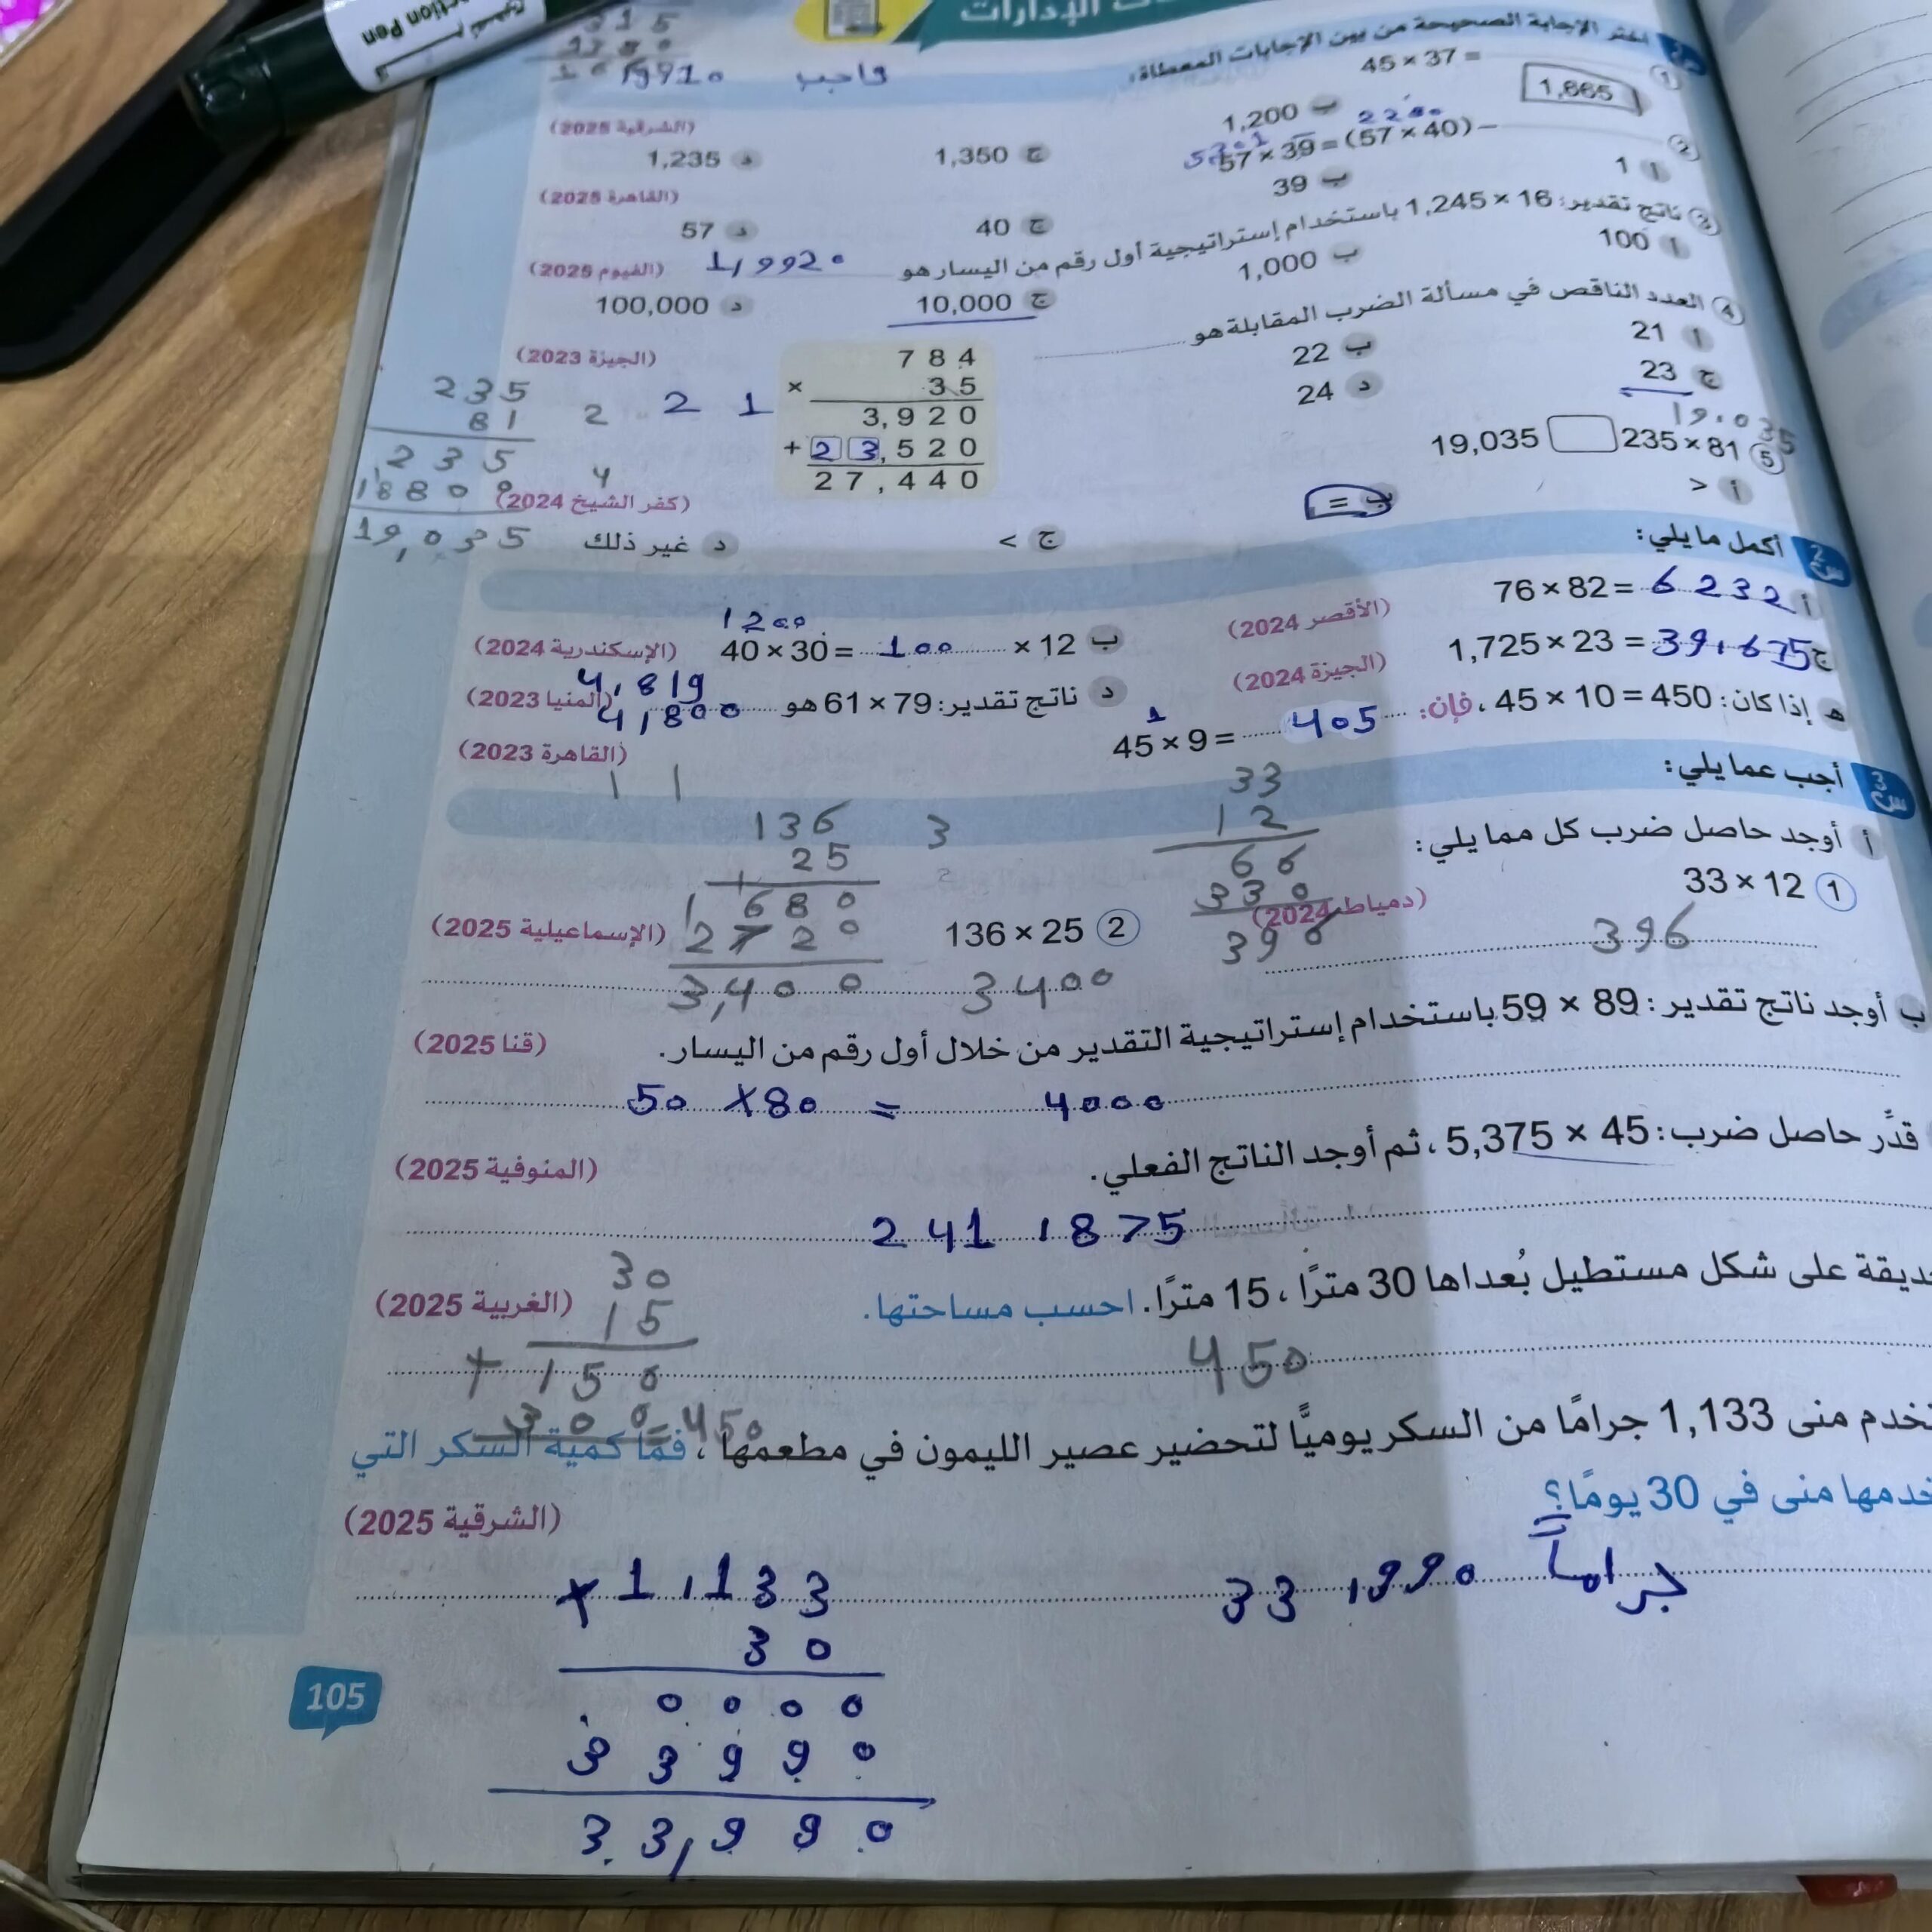 ction Pen
الإدارات
اختر الإجابة الصحيحة من بين الإجابات المعطاة:
واجب
① 45 × 37 =
1,665
ب 1,200
ج 1,350
د 1,235
(الشرقية 2025)
2280
② 57 × 39 = (57 × 40) –
أ 1
ب 39
ج 40
د 57
(القاهرة 2025)
③ ناتج تقدير: 16 × 1,245 باستخدام إستراتيجية أول رقم من اليسار هو 1,9920
(الفيوم 2025)
أ 100
ب 1,000
ج 10,000
د 100,000
④ العدد الناقص في مسألة الضرب المقابلة هو
(الجيزة 2023)
أ 21
ب 22
ج 23
د 24
784
× 35
3,920
+ 23,520
27,440
2 2 1
235
81
235
18800
19,035
4
19,035
⑤ 235 × 81 19,035
(كفر الشيخ 2024)
أ >
ب =
ج <
د غير ذلك
س2 أكمل ما يلي:
أ 76 × 82 = 6232
(الأقصر 2024)
1200
ب 40 × 30 = 100 × 12
(الإسكندرية 2024)
ج 1,725 × 23 = 39,675
(الجيزة 2024)
4,819
د ناتج تقدير: 79 × 61 هو 4,800
(المنيا 2023)
هـ إذا كان: 45 × 10 = 450، فإن: 45 × 9 = 405
1
(القاهرة 2023)
س3 أجب عما يلي:
أ أوجد حاصل ضرب كل مما يلي:
① 33 × 12
(دمياط 2024)
396
33
12
66
330
396
② 136 × 25
(الإسماعيلية 2025)
3400
1 1
136
25
3
+
680
2720
3,400
ب أوجد ناتج تقدير: 89 × 59 باستخدام إستراتيجية التقدير من خلال أول رقم من اليسار.
(قنا 2025)
50 × 80 = 4000
قدِّر حاصل ضرب: 45 × 5,375، ثم أوجد الناتج الفعلي.
(المنوفية 2025)
241,875
ديقة على شكل مستطيل بُعداها 30 مترًا، 15 مترًا. احسب مساحتها.
(الغربية 2025)
450
30
15
+ 150
300 = 450
خدم منى 1,133 جرامًا من السكر يوميًّا لتحضير عصير الليمون في مطعمها، فما كمية السكر التي
خدمها منى في 30 يومًا؟
(الشرقية 2025)
33,990 جراماً
× 1,133
30
0000
33990
33,990
105